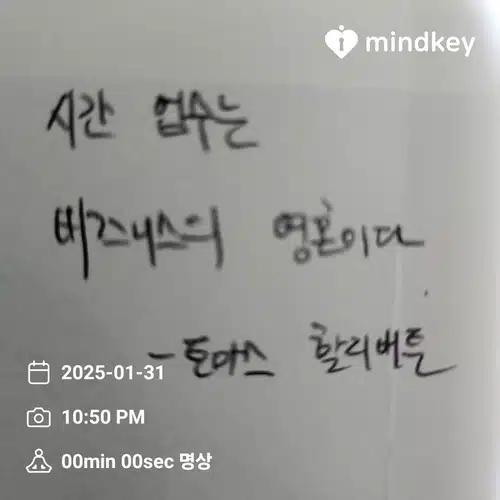 mindkey
시간 업수는
비즈니스의 영혼이다
- 토마스 할리버튼
2025-01-31
10:50 PM
00min 00sec 명상